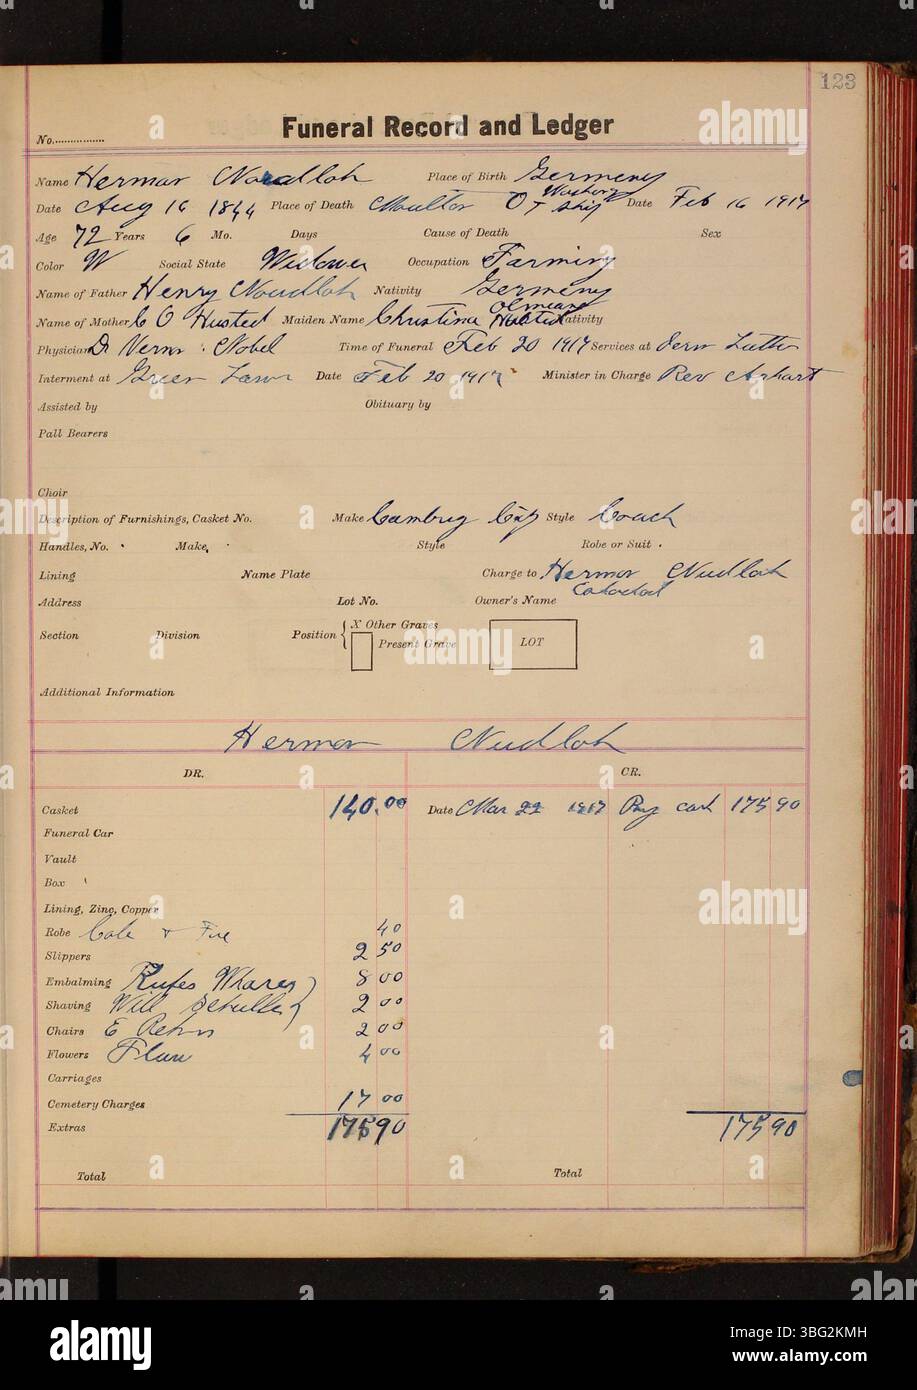 123
Funeral Record and Ledger
No.
Name Herman Noudloh Place of Birth Germeny
Date Aug 16 1844 Place of Death Moulton Washing T ship Date Feb 16 1917
Age 72 Years 6 Mo. Days Cause of Death Sex
Color W Social State Widower Occupation Farming
Name of Father Henry Noudloh Nativity Germeny
Name of Mother C O Husted Maiden Name Christina Nativity
Physician Dr Verne Nobel Time of Funeral Feb 20 1917 Services at Luth
Interment at Green Lawn Date Feb 20 1917 Minister in Charge Rev Arhart
Assisted by Obituary by
Pall Bearers
Choir
Description of Furnishings, Casket No. Make Style Coach
Handles, No. Make, Style Robe or Suit
Lining Name Plate Charge to Herman Nudloh
Address Lot No. Owner's Name
Section Division Position { X Other Graves
Present Grave LOT
Additional Information
Herman Nudloh
DR. CR.
Casket 140.00 Date Mar 22 1917 By cash 175 90
Funeral Car
Vault
Box
Lining, Zinc, Copper
Robe 40
Slippers 2 50
Embalming Rufes 8 00
Shaving Will 2 00
Chairs E 2 00
Flowers 4 00
Carriages
Cemetery Charges 17 00
Extras 175 90 175 90
Total Total
alamy
Image ID: 3BG2KMH
www.alamy.com